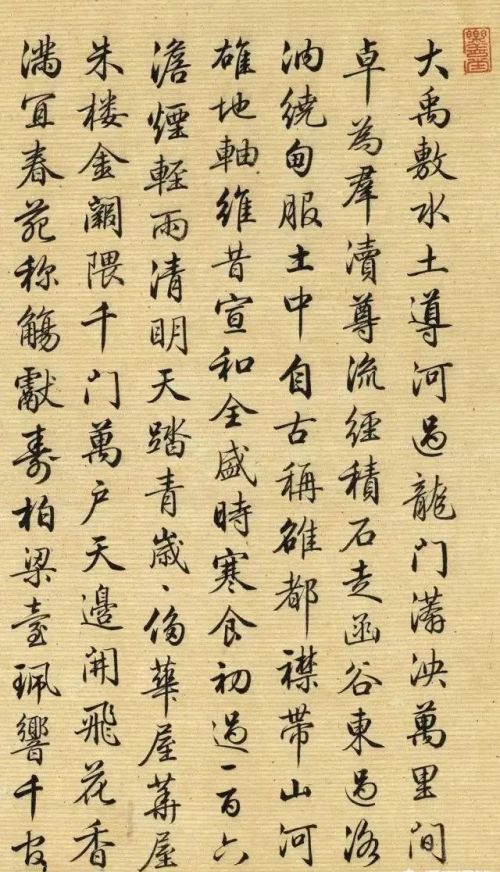 大禹敷水土導河過龍门泱萬里间
卓為羣瀆尊流經積石走函谷東過洛
汭繞甸服土中自古稱雄都襟帶山河
雄地軸維昔宣和全盛時寒食初過一百六
澹煙輕雨清明天踏青歲々侈華屋華屋
朱楼金闕隈千门萬户天邊開飛花香
满宜春苑称觴獻壽柏梁臺珮響千官